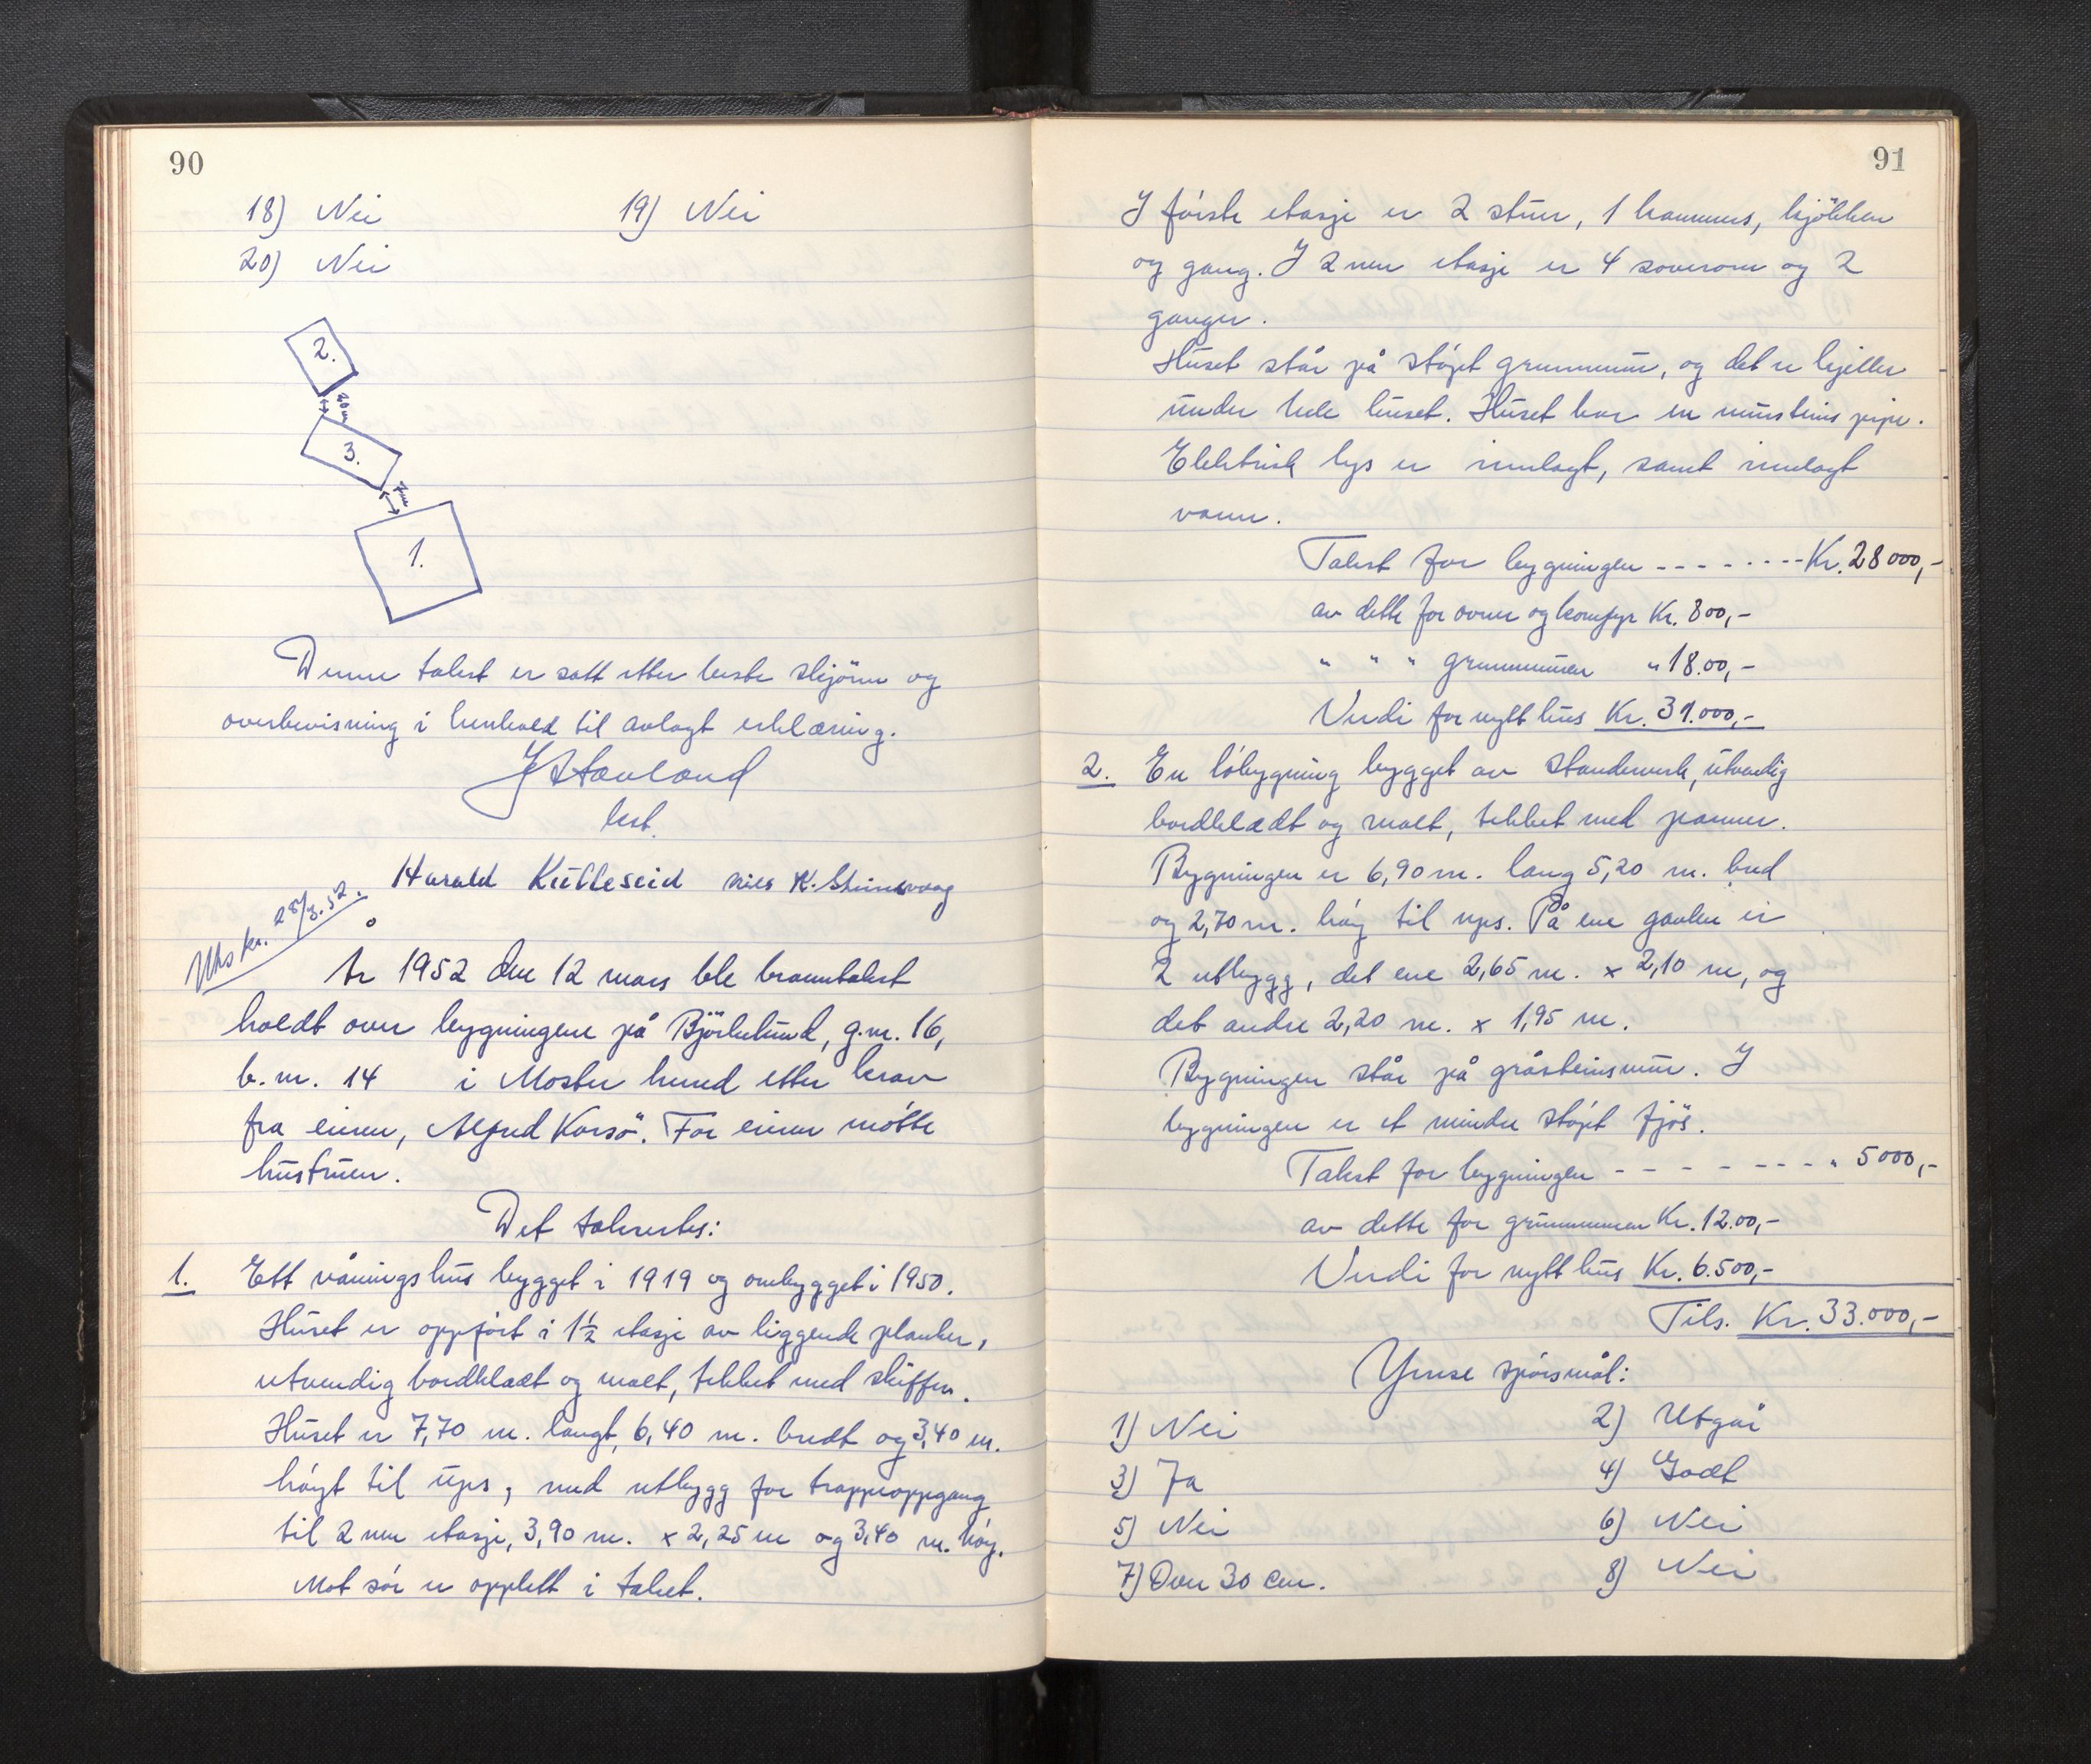 90
18) Nei 19) Nei
20) Nei
2.
20 m
3.
7 m
1.
Denne takst er satt etter beste skjönn og
overbevisning i henhold til avlagt erklæring.
lest.
Harald Kulleseid Nils K. Steinsvaag
Utskr. 28/3.52.
År 1952 den 12 mars ble branntakst
holdt over bygningene på Björkelund, g.nr. 16,
b.nr. 14 i Moster herred etter krav
fra eieren, Alfred Korsö. For eieren mötte
hustruen.
Det takseres:
1. Ett våningshus bygget i 1919 og ombygget i 1950.
Huset er oppfört i 1½ etasje av liggende planker,
utvendig bordklædt og malt, tekket med skiffer.
Huset er 7,70 m. langt, 6,40 m. bredt og 3,40 m.
höyt til ups, med utbygg for trappeoppgang
til 2 nen etasje, 3,90 m. x 2,25 m og 3,40 m. höy.
Mot sör er opplett i taket.
91
I förste etasje er 2 stuer, 1 kammers, kjökken
og gang. I 2 nen etasje er 4 soverom og 2
ganger.
Huset står på stöpt grunnmur, og det er kjeller
under hele huset. Huset har en mursteins pipe.
Elektrisk lys er innlagt, samt innlagt
vann.
Takst for bygningen - - - - - - - - Kr. 28 000,-
av dette for ovner og komfyr Kr. 800,-
" " " grunnmuren " 18.00,-
Verdi for nytt hus Kr. 31.000,-
2. En löbygning bygget av standerverk, utvendig
bordklædt og malt, tekket med panner.
Bygningen er 6,90 m. lang 5,20 m. bred
og 2,70 m. höy til ups. På ene gavlen er
2 utbygg, det ene 2,65 m. x 2,10 m, og
det andre 2,20 m. x 1,95 m.
Bygningen står på gråsteinsmur. I
bygningen er et mindre stöpt fjös.
Takst for bygningen - - - - - - - - " 5000,-
av dette for grunnmuren Kr. 12.00,-
Verdi for nytt hus Kr. 6.500,-
Tils. Kr. 33.000,-
Ymse spörsmål:
1) Nei 2) Utgår
3) Ja 4) Godt
5) Nei 6) Nei
7) Over 30 cm. 8) Nei